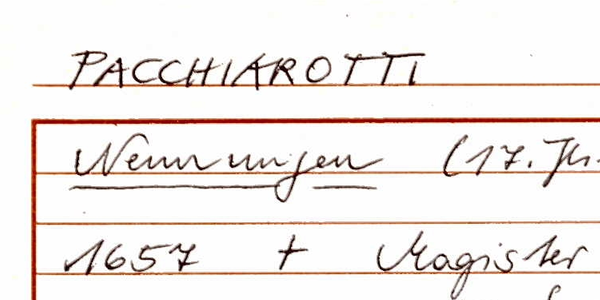 PACCHIAROTTI
Nennungen (17. Jh.
1657 † Magister